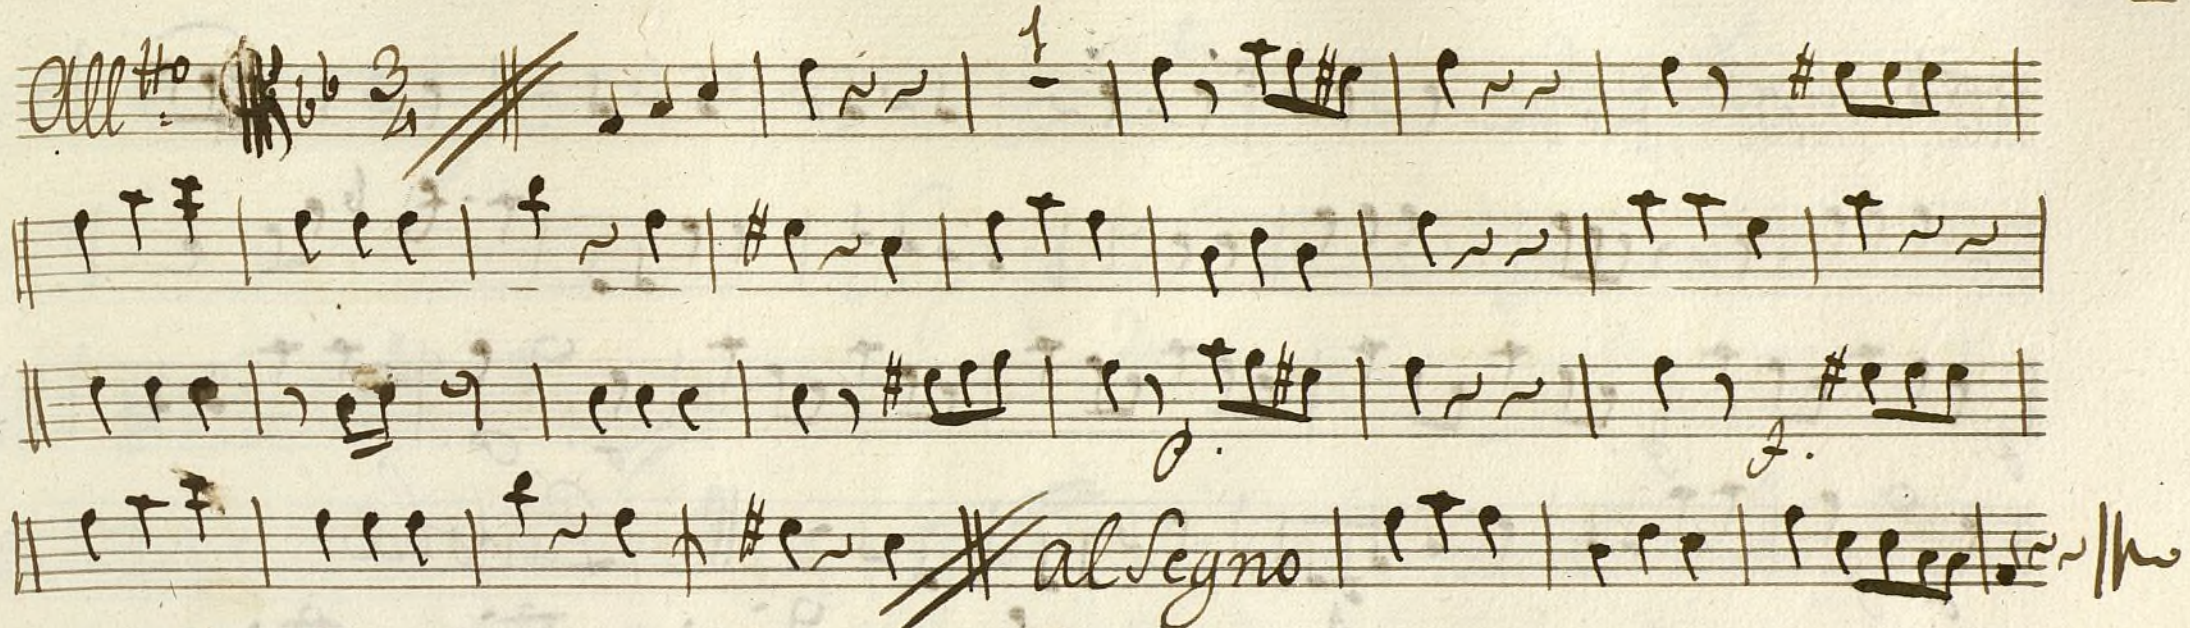 All.tto 3/4 1
P. F.
al Segno